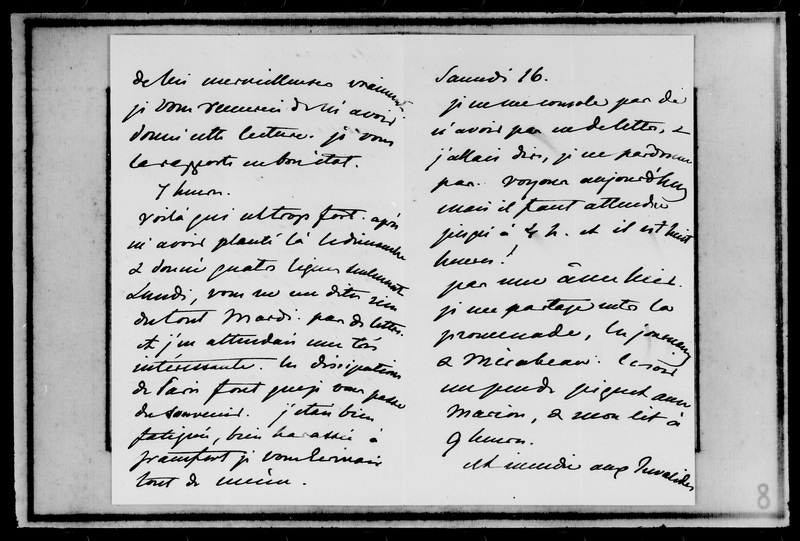 de lui merveilleuses vraiment.
je vous remercie de m'avoir
donné cette lecture. je vous
la rapporte en bon état.
7 heures.
Voilà qui est trop fort. après
m'avoir planté là le dimanche
& donné quatre lignes seulement
Lundi, vous ne me dites rien
du tout Mardi. pas de lettre.
et j'en attendais une très
intéressante. les dissipations
de Paris font que je vous passe
du souvenir. j'étais bien
fatigué, bien harassé à
francfort je vous écrivais
tout de même.
Samedi 16.
je ne me console pas de
n'avoir pas eu de lettre, &
j'allais dire, je ne pardonne
pas. Voyons aujourd'huy
mais il faut attendre
jusqu'à 4 h. et il est huit
heures!
pas une âme hier.
je me partage entre la
promenade, les journaux
& Mirabeau. le soir
un peu de piquet avec
Marion, & mon lit à
9 heures.
et incendie aux Invalides
8